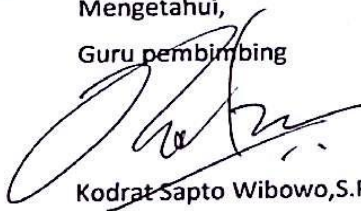 Mengetahui,
Guru pembimbing
Kodrat Sapto Wibowo,S.P